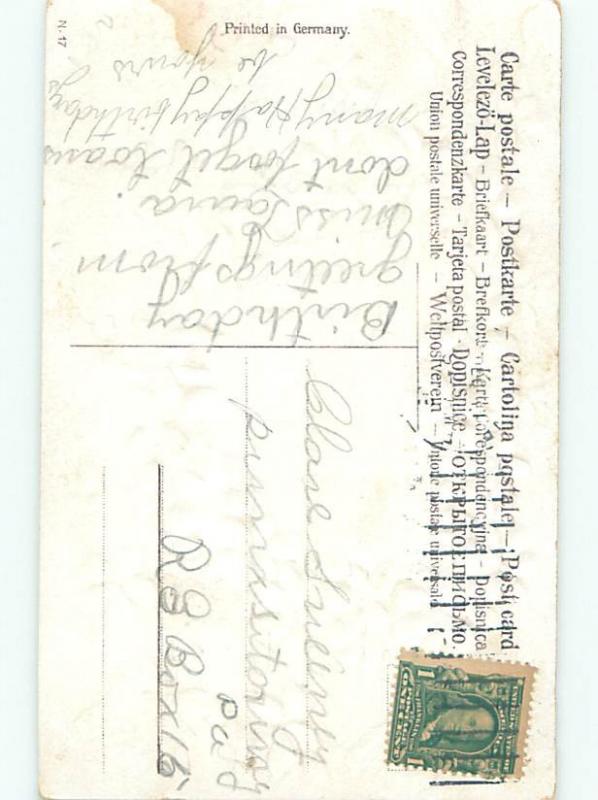 Carte postale – Postkarte – Cartolina postale – Post card
Levelező-Lap – Briefkaart – Brefkort – Karta korespondencyjna – Dopisnica
Correspondenzkarte – Tarjeta postal · Dopisnice – ОТКРЫТОЕ ПИСЬМО.
Union postale universelle – Weltpostverein – Unione postale universale
Birthday
greetings from
Miss Laura.
dont forget
many Happy birthdays
be yours
R
Box 15
Pa
Printed in Germany.
N. 17
1 1